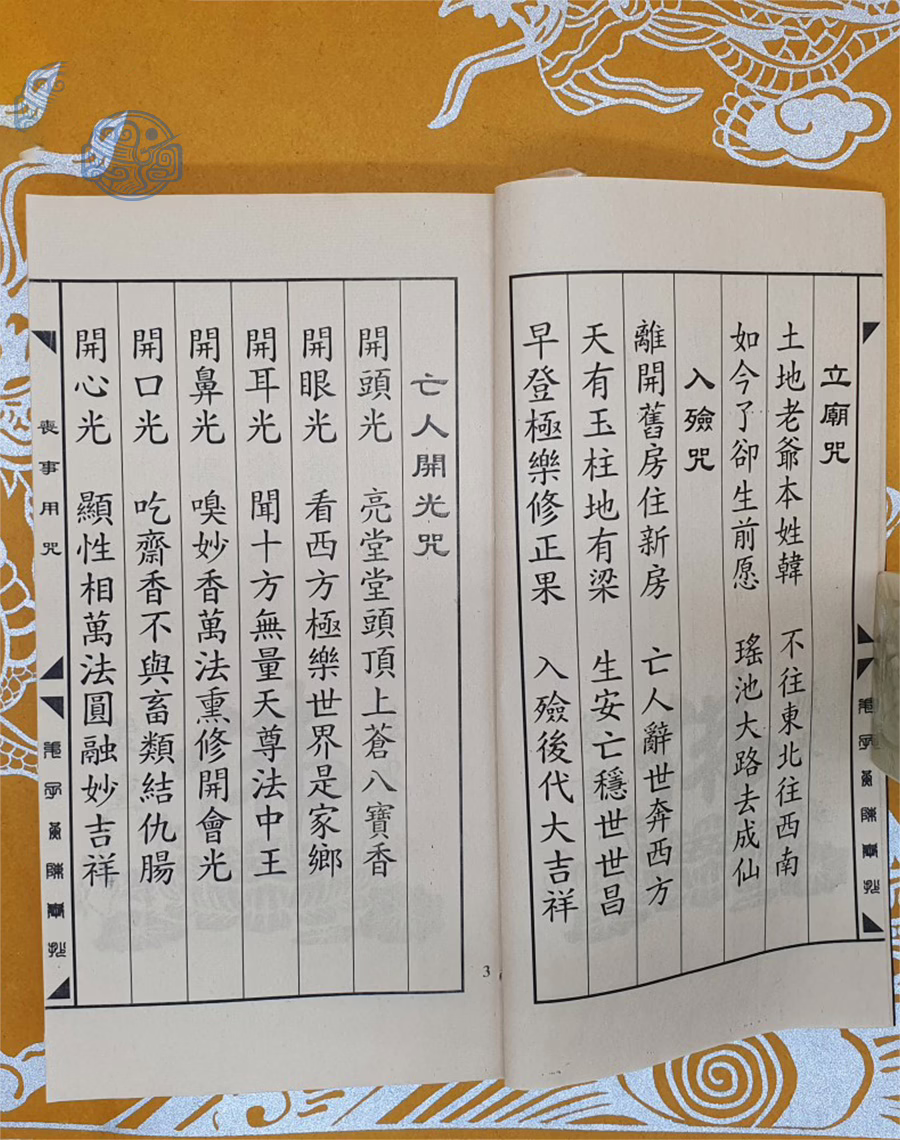 立廟咒
土地老爺本姓韓　不往東北往西南
如今了卻生前愿　瑤池大路去成仙
入殮咒
離開舊房住新房　亡人辭世奔西方
天有玉柱地有梁　生安亡穩世世昌
早登極樂修正果　入殮後代大吉祥
3
亡人開光咒
開頭光　亮堂堂頭頂上蒼八寶香
開眼光　看西方極樂世界是家鄉
開耳光　聞十方無量天尊法中王
開鼻光　嗅妙香萬法熏修開會光
開口光　吃齋香不與畜類結仇腸
開心光　顯性相萬法圓融妙吉祥
喪事用咒